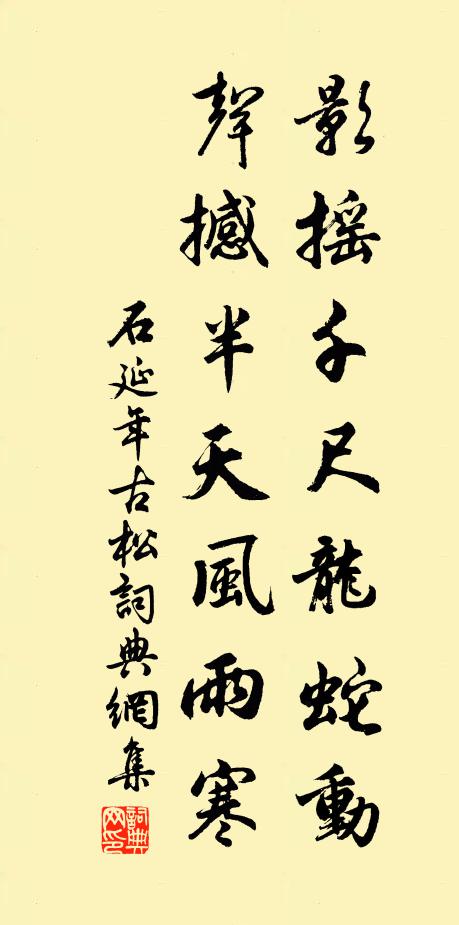 影搖千尺龍蛇動
聲撼半天風雨寒
石延年古松詞典網集
詞典網印